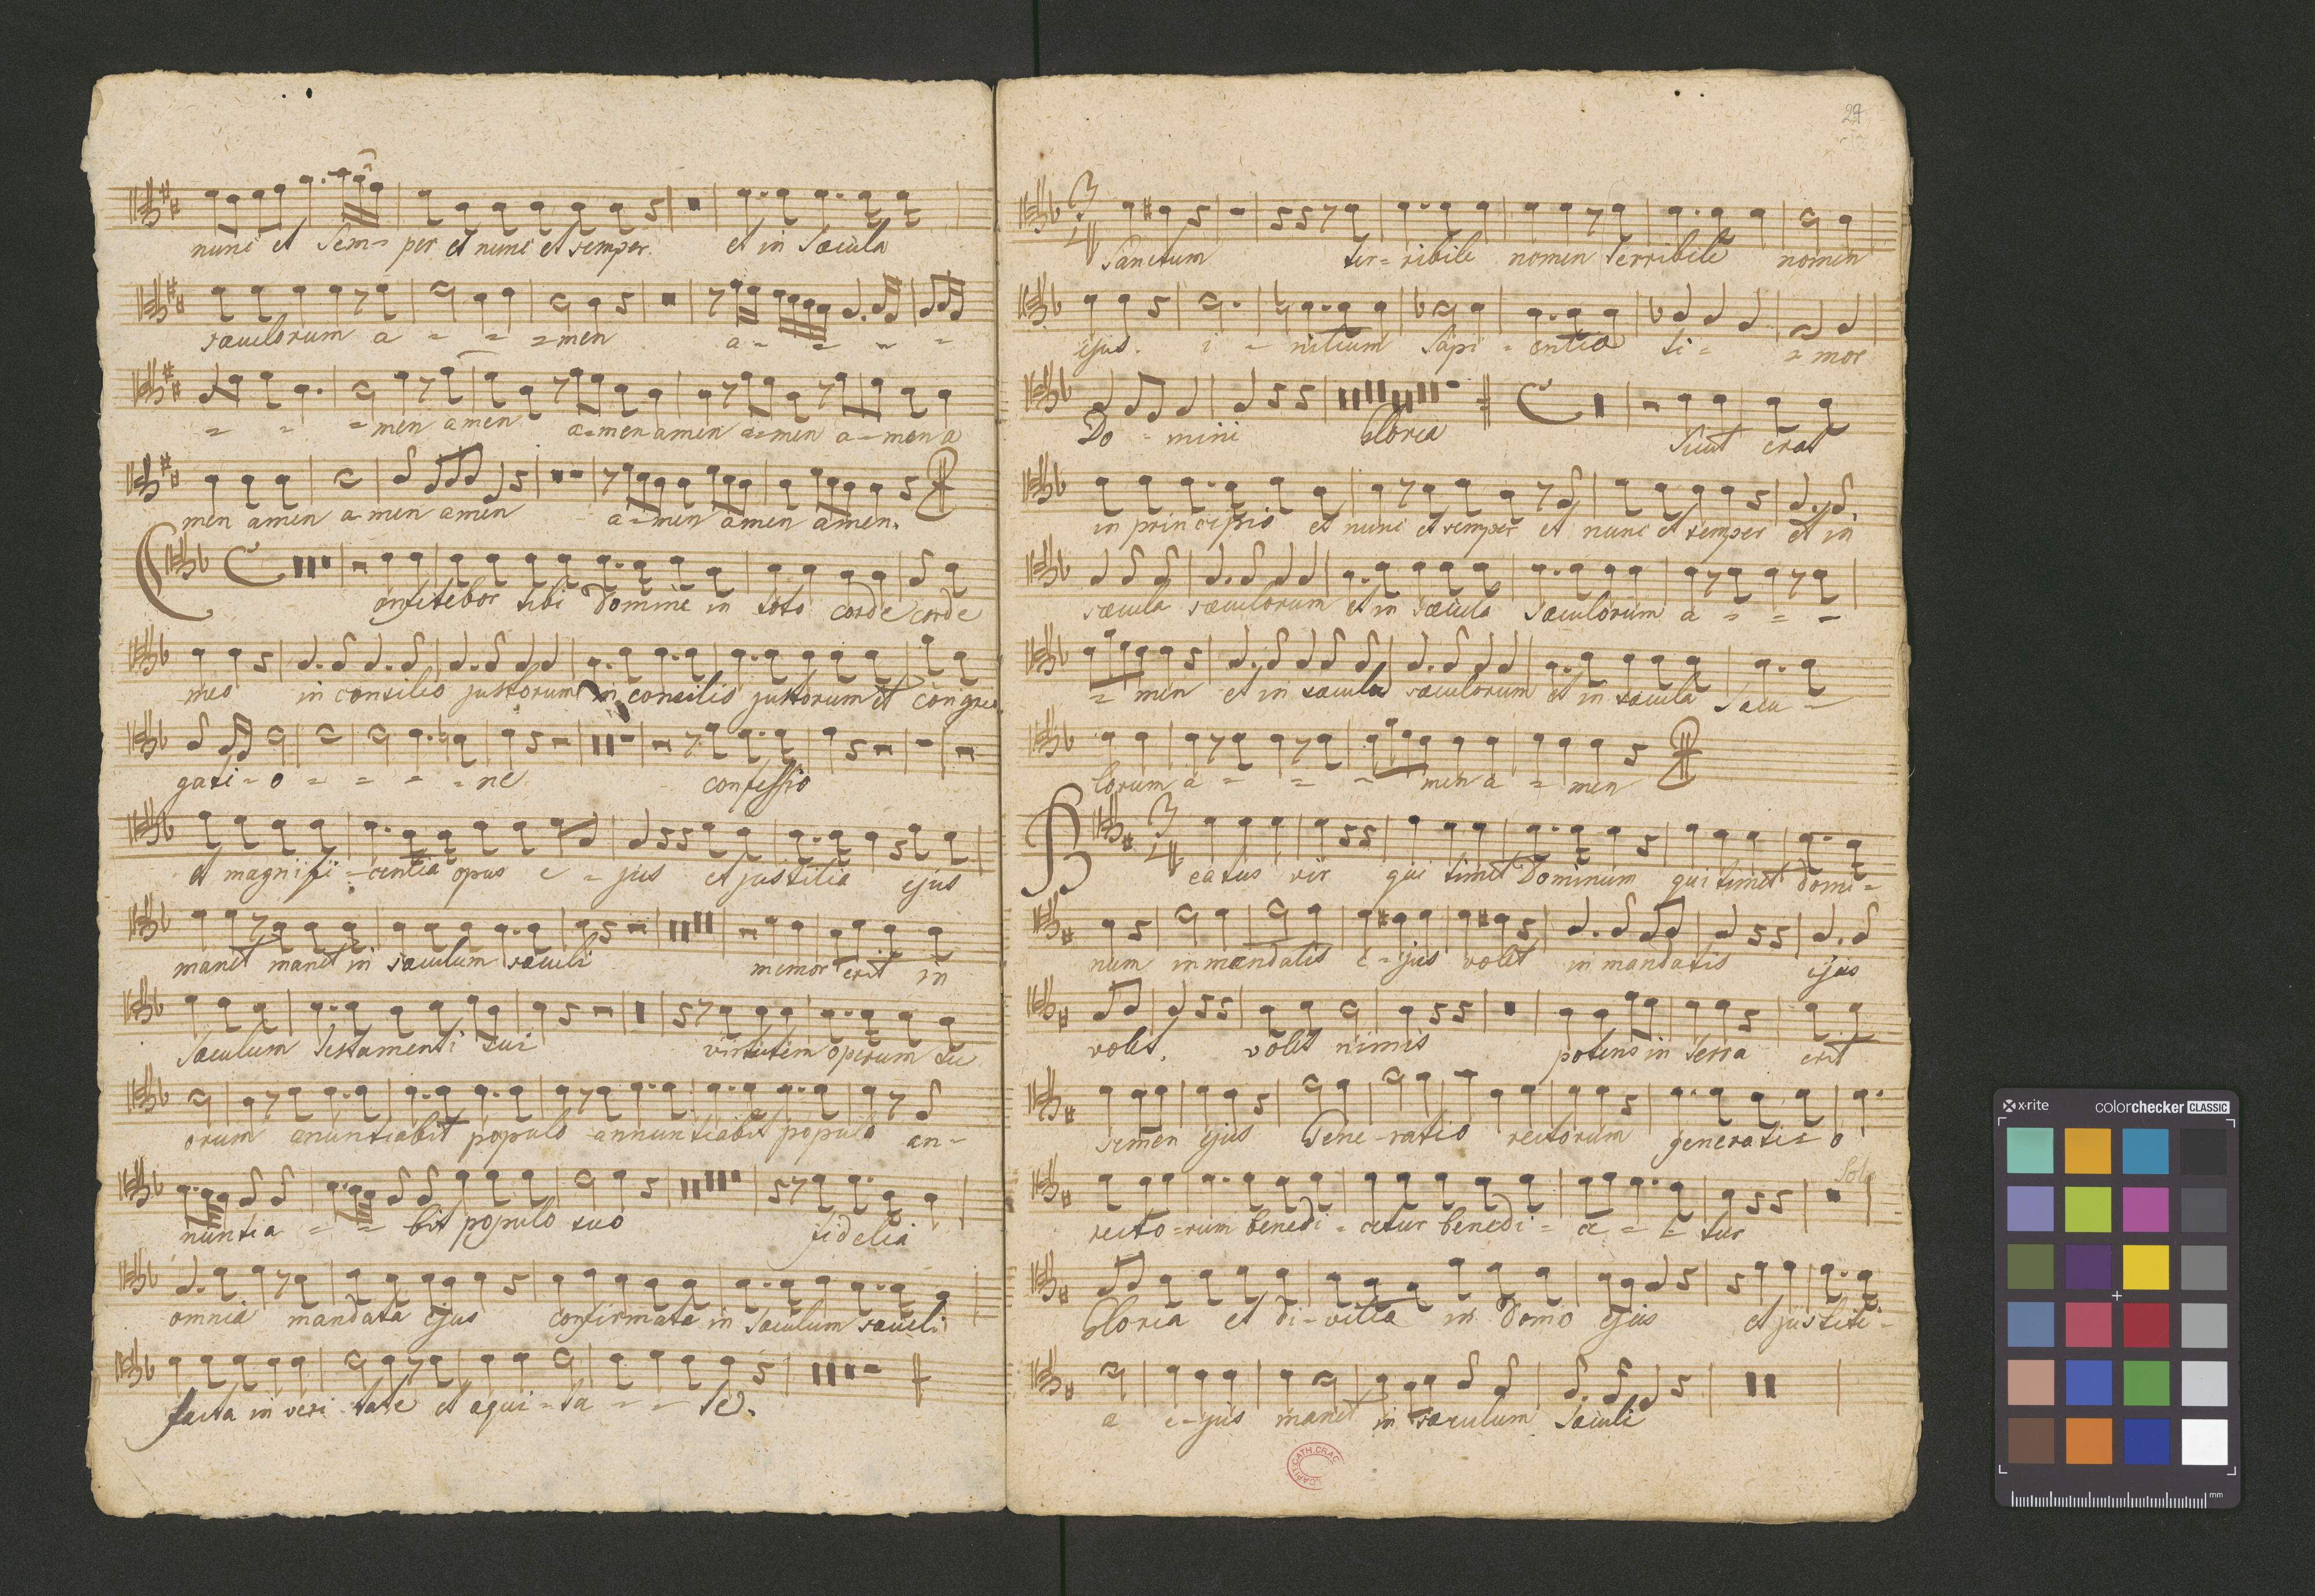 nunc et Sem= per et nunc et semper. et in Sæcula
sæculorum a = = =men a= = = =
= = =men amen a=men amen a=men a=men a
men amen a men amen a=men amen amen.
Confitebor tibi Domine in toto corde corde
meo in consilio justorum in consilio justorum et congre
gati=o = = = =ne confessio
et magnifi=centia opus e = jus et justitia ejus
manet manet in sæculum sæculi memor erit in
Sæculum Testamenti sui virtutem operum su
orum anuntiabit populo annuntiabit populo an=
nuntia = = bit populo suo fidelia
omnia mandata ejus confirmata in Sæculum sæculi
facta in veri tate et aqui=ta = = te.
24
3/4 Sanctum ter=ribile nomen Terribile nomen
ejus. i = nitium Sapi = entia ti= = mor
Do = mini Gloria Sicut erat
in principio et nunc et semper et nunc et semper et in
sæcula sæculorum et in sæcula Sæculorum a = = =
= men et in sæcula sæculorum et in sæcula Sæcu =
lorum a = = = men a = men
Beatus vir qui timet Dominum qui timet domi=
num in mandatis e=jus volet in mandatis ejus
volet. volet nimis potens in Terra erit
semen ejus Gene=ratio rectorum generati=o
Solo
recto=rum benedi=cetur benedi= ce = = tur
Gloria et di=vitia in Domo ejus et justiti=
a e=jus manet in sæculum Sæculi
CAPIT. CATH. CRAC.
x-rite
colorchecker CLASSIC
mm